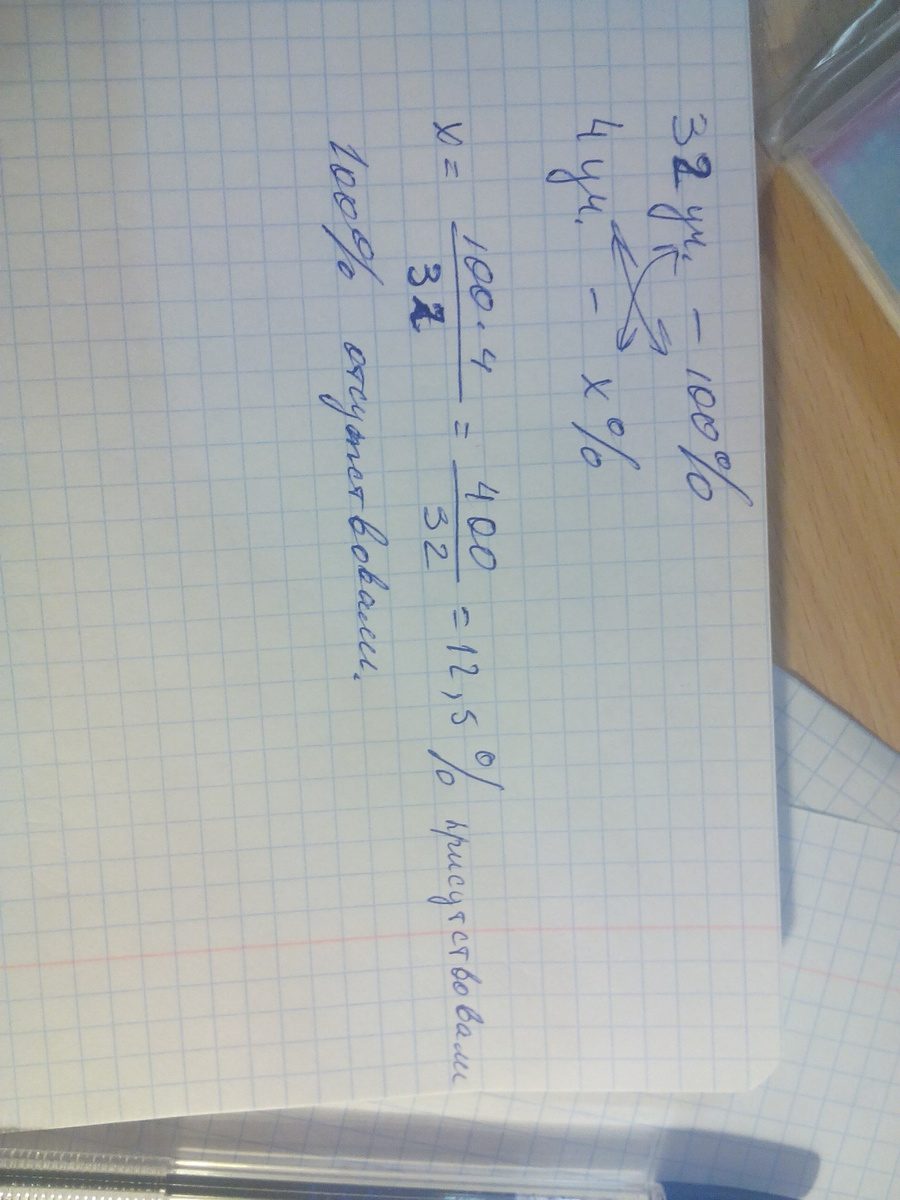 32 уч. – 100%
4 уч. – x%
x = 100·4/32 = 400/32 = 12,5% присутствовали
100% отсутствовали.